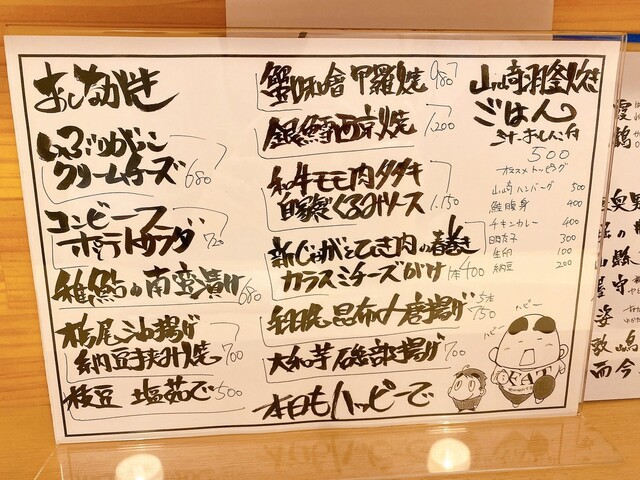 おしながき
いぶりがっこ
クリームチーズ 680
コンビーフ
ポテトサラダ 720
稚鮎の南蛮漬け 680
栃尾油揚げ
納豆挟み焼 700
枝豆 塩茹で 500
蟹味噌甲羅焼 980
銀鱈西京焼 1,200
和牛モモ肉タタキ
自家製くるみソース 1,150
新じゃがとひき肉の春巻き
カラスミチーズがけ 1本400
昆布〆唐揚げ 5本 750
大和芋磯部揚げ 700
本日もハッピーで
山崎羽釜炊き
ごはん
汁・おしんこ付
500
オススメトッピング
山崎ハンバーグ 500
鮭腹身 400
チキンカレー 400
明太子 300
生卵 100
納豆 200
ハピー
ハピー
EAT
霞
鶴
奥
山縣
守
姿
敷嶋
而今